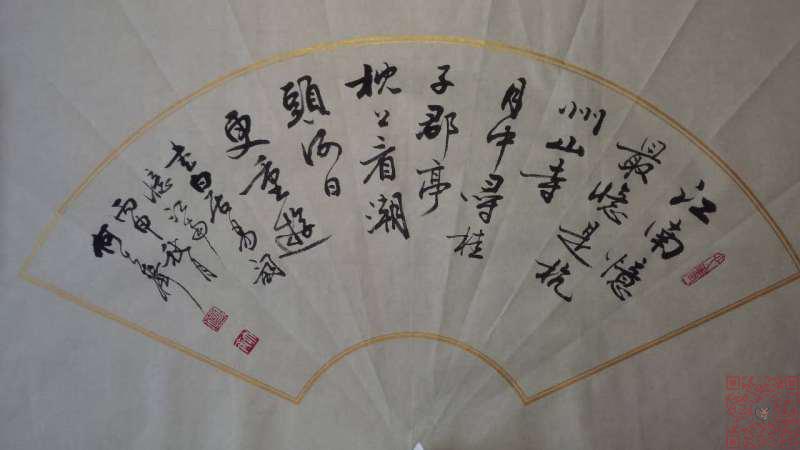 江南憶
最憶是杭
州山寺
月中尋桂
子郡亭
枕上看潮
頭何日
更重遊
書白居易詞
憶江南
丙申秋月